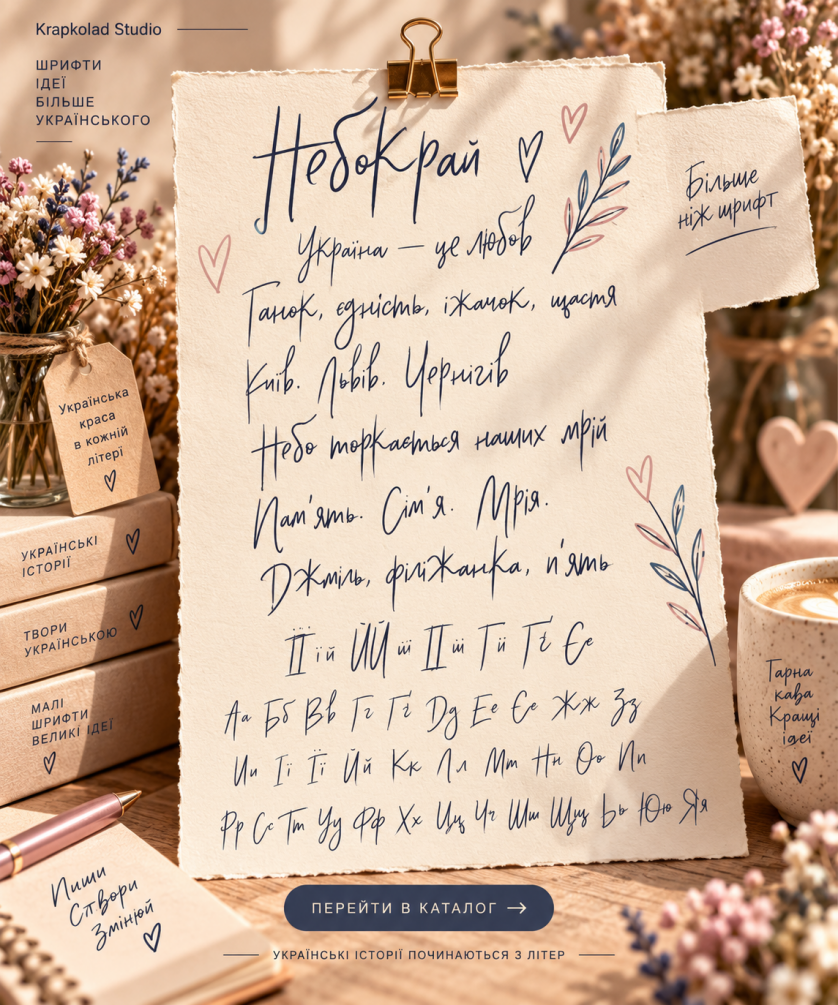 Krapkolad Studio
ШРИФТИ
ІДЕЇ
БІЛЬШЕ
УКРАЇНСЬКОГО
НебоКрай
Більше
ніж шрифт
Україна — це любов
Танок, єдність, їжачок, щастя
Київ. Львів. Чернігів
Небо торкається наших мрій
Пам'ять. Сім'я. Мрія.
Джміль, філіжанка, п'ять
Українська
краса
в кожній
літері
УКРАЇНСЬКІ
ІСТОРІЇ
ТВОРИ
УКРАЇНСЬКОЮ
МАЛІ
ШРИФТИ
ВЕЛИКІ ІДЕЇ
Гарна
кава
Кращі
ідеї
Аа Бб Вв Гг Ґґ Дд Ее Єє Жж Зз
Ии Іі Її Йй Кк Лл Мм Нн Оо Пп
Рр Сс Тт Уу Фф Хх Цц Чч Шш Щщ Ьь Юю Яя
Пиши
Створи
Змінюй
ПЕРЕЙТИ В КАТАЛОГ →
УКРАЇНСЬКІ ІСТОРІЇ ПОЧИНАЮТЬСЯ З ЛІТЕР